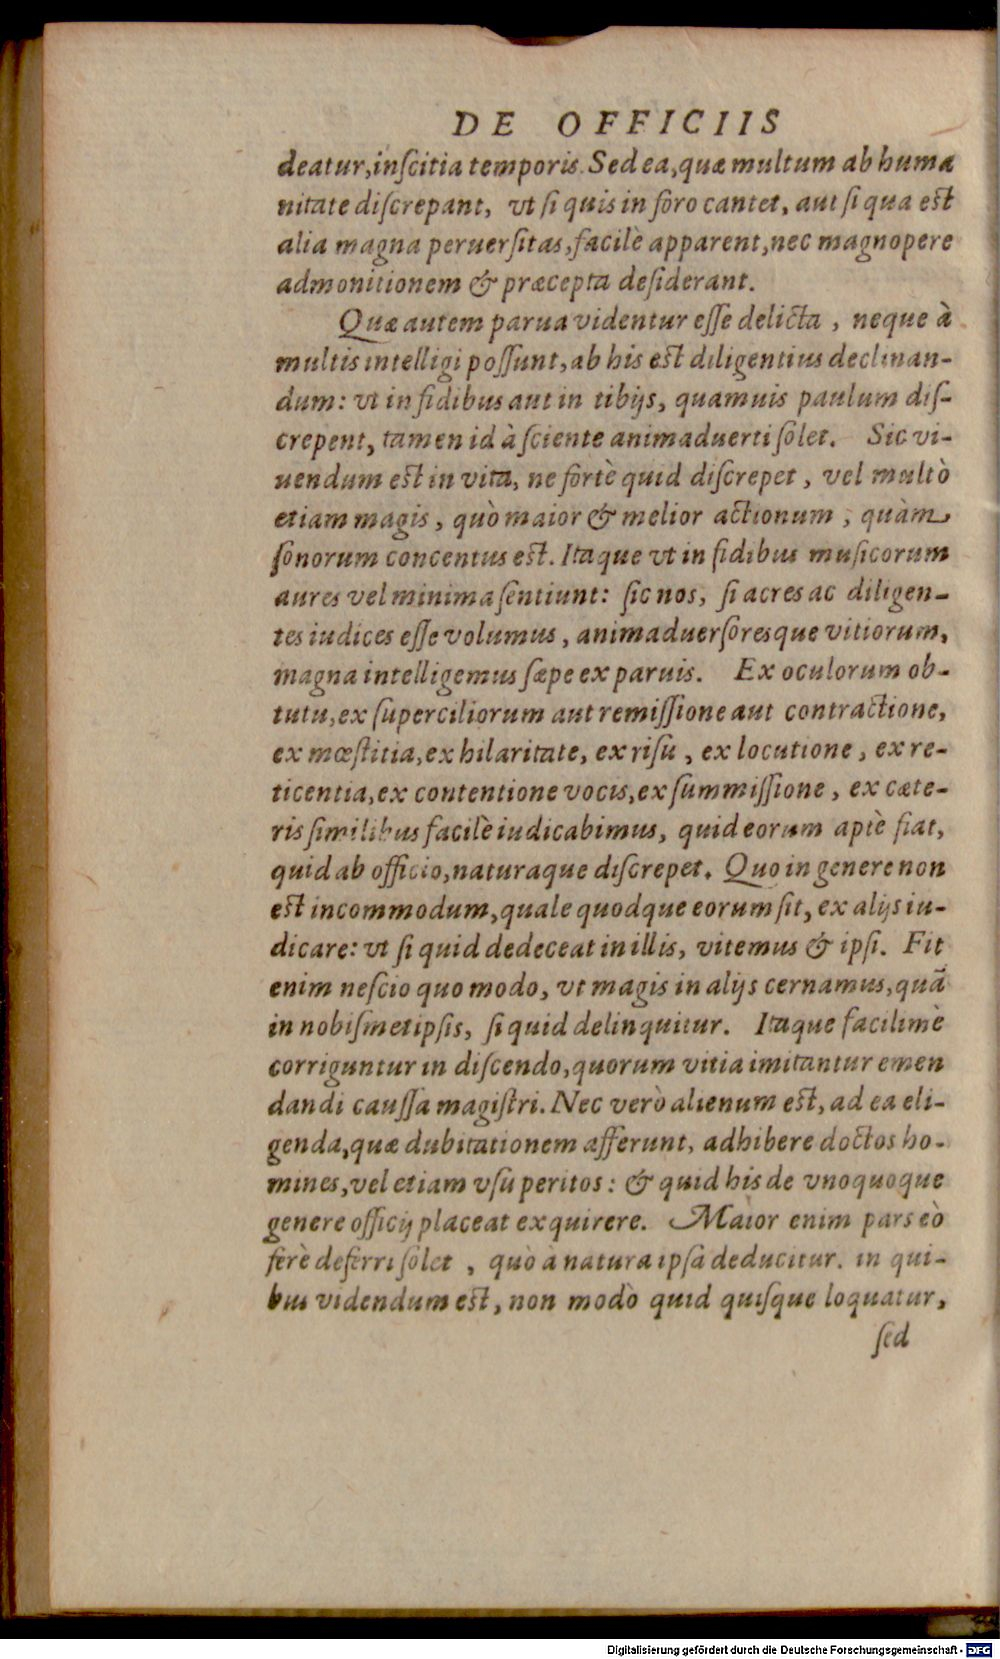 DE OFFICIIS
deatur, inſcitia temporis. Sed ea, quæ multum ab huma
nitate diſcrepant, vt ſi quis in foro cantet, aut ſi qua est
alia magna peruerſitas, facilè apparent, nec magnopere
admonitionem & præcepta deſiderant.
Quæ autem parua videntur eſſe delicta, neque à
multis intelligi poſſunt, ab his est diligentius declinan-
dum: vt in fidibus aut in tibijs, quamuis paulum diſ-
crepent, tamen id à ſciente animaduerti ſolet. Sic vi-
uendum est in vita, ne fortè quid diſcrepet, vel multò
etiam magis, quò maior & melior actionum, quàm
ſonorum concentus est. Itaque vt in fidibus muſicorum
aures vel minima ſentiunt: ſic nos, ſi acres ac diligen-
tes iudices eſſe volumus, animaduerſoresque vitiorum,
magna intelligemus ſæpe ex paruis. Ex oculorum ob-
tutu, ex ſuperciliorum aut remiſſione aut contractione,
ex mœſtitia, ex hilaritate, ex riſu, ex locutione, ex re-
ticentia, ex contentione vocis, ex ſummiſſione, ex cæte-
ris ſimilibus facilè iudicabimus, quid eorum aptè fiat,
quid ab officio, naturaque diſcrepet. Quo in genere non
est incommodum, quale quodque eorum ſit, ex alijs iu-
dicare: vt ſi quid dedeceat in illis, vitemus & ipſi. Fit
enim neſcio quo modo, vt magis in alijs cernamus, quã
in nobiſmetipſis, ſi quid delinquitur. Itaque facilimè
corriguntur in diſcendo, quorum vitia imitantur emen
dandi cauſſa magiſtri. Nec verò alienum est, ad ea eli-
genda, quæ dubitationem afferunt, adhibere doctos ho-
mines, vel etiam vſu peritos: & quid his de vnoquoque
genere officij placeat exquirere. Maior enim pars eò
ferè deferri ſolet, quò à natura ipſa deducitur. in qui-
bus videndum est, non modò quid quiſque loquatur,
ſed
Digitalisierung gefördert durch die Deutsche Forschungsgemeinschaft - DFG